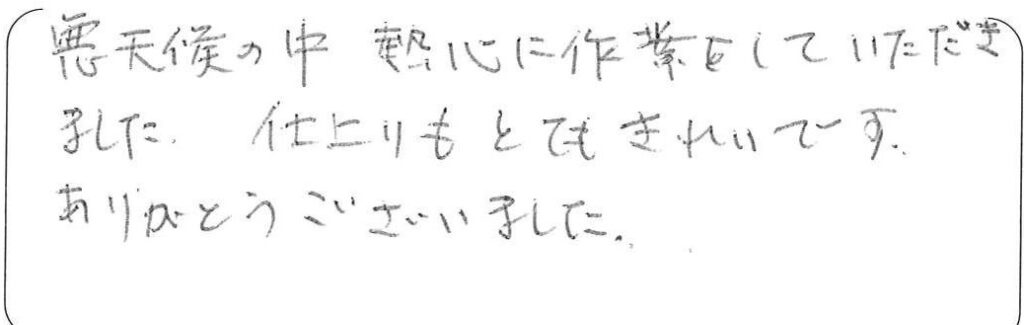 悪天候の中 熱心に作業をしていただき
ました. 仕上りもとてもきれいです.
ありがとうございました.